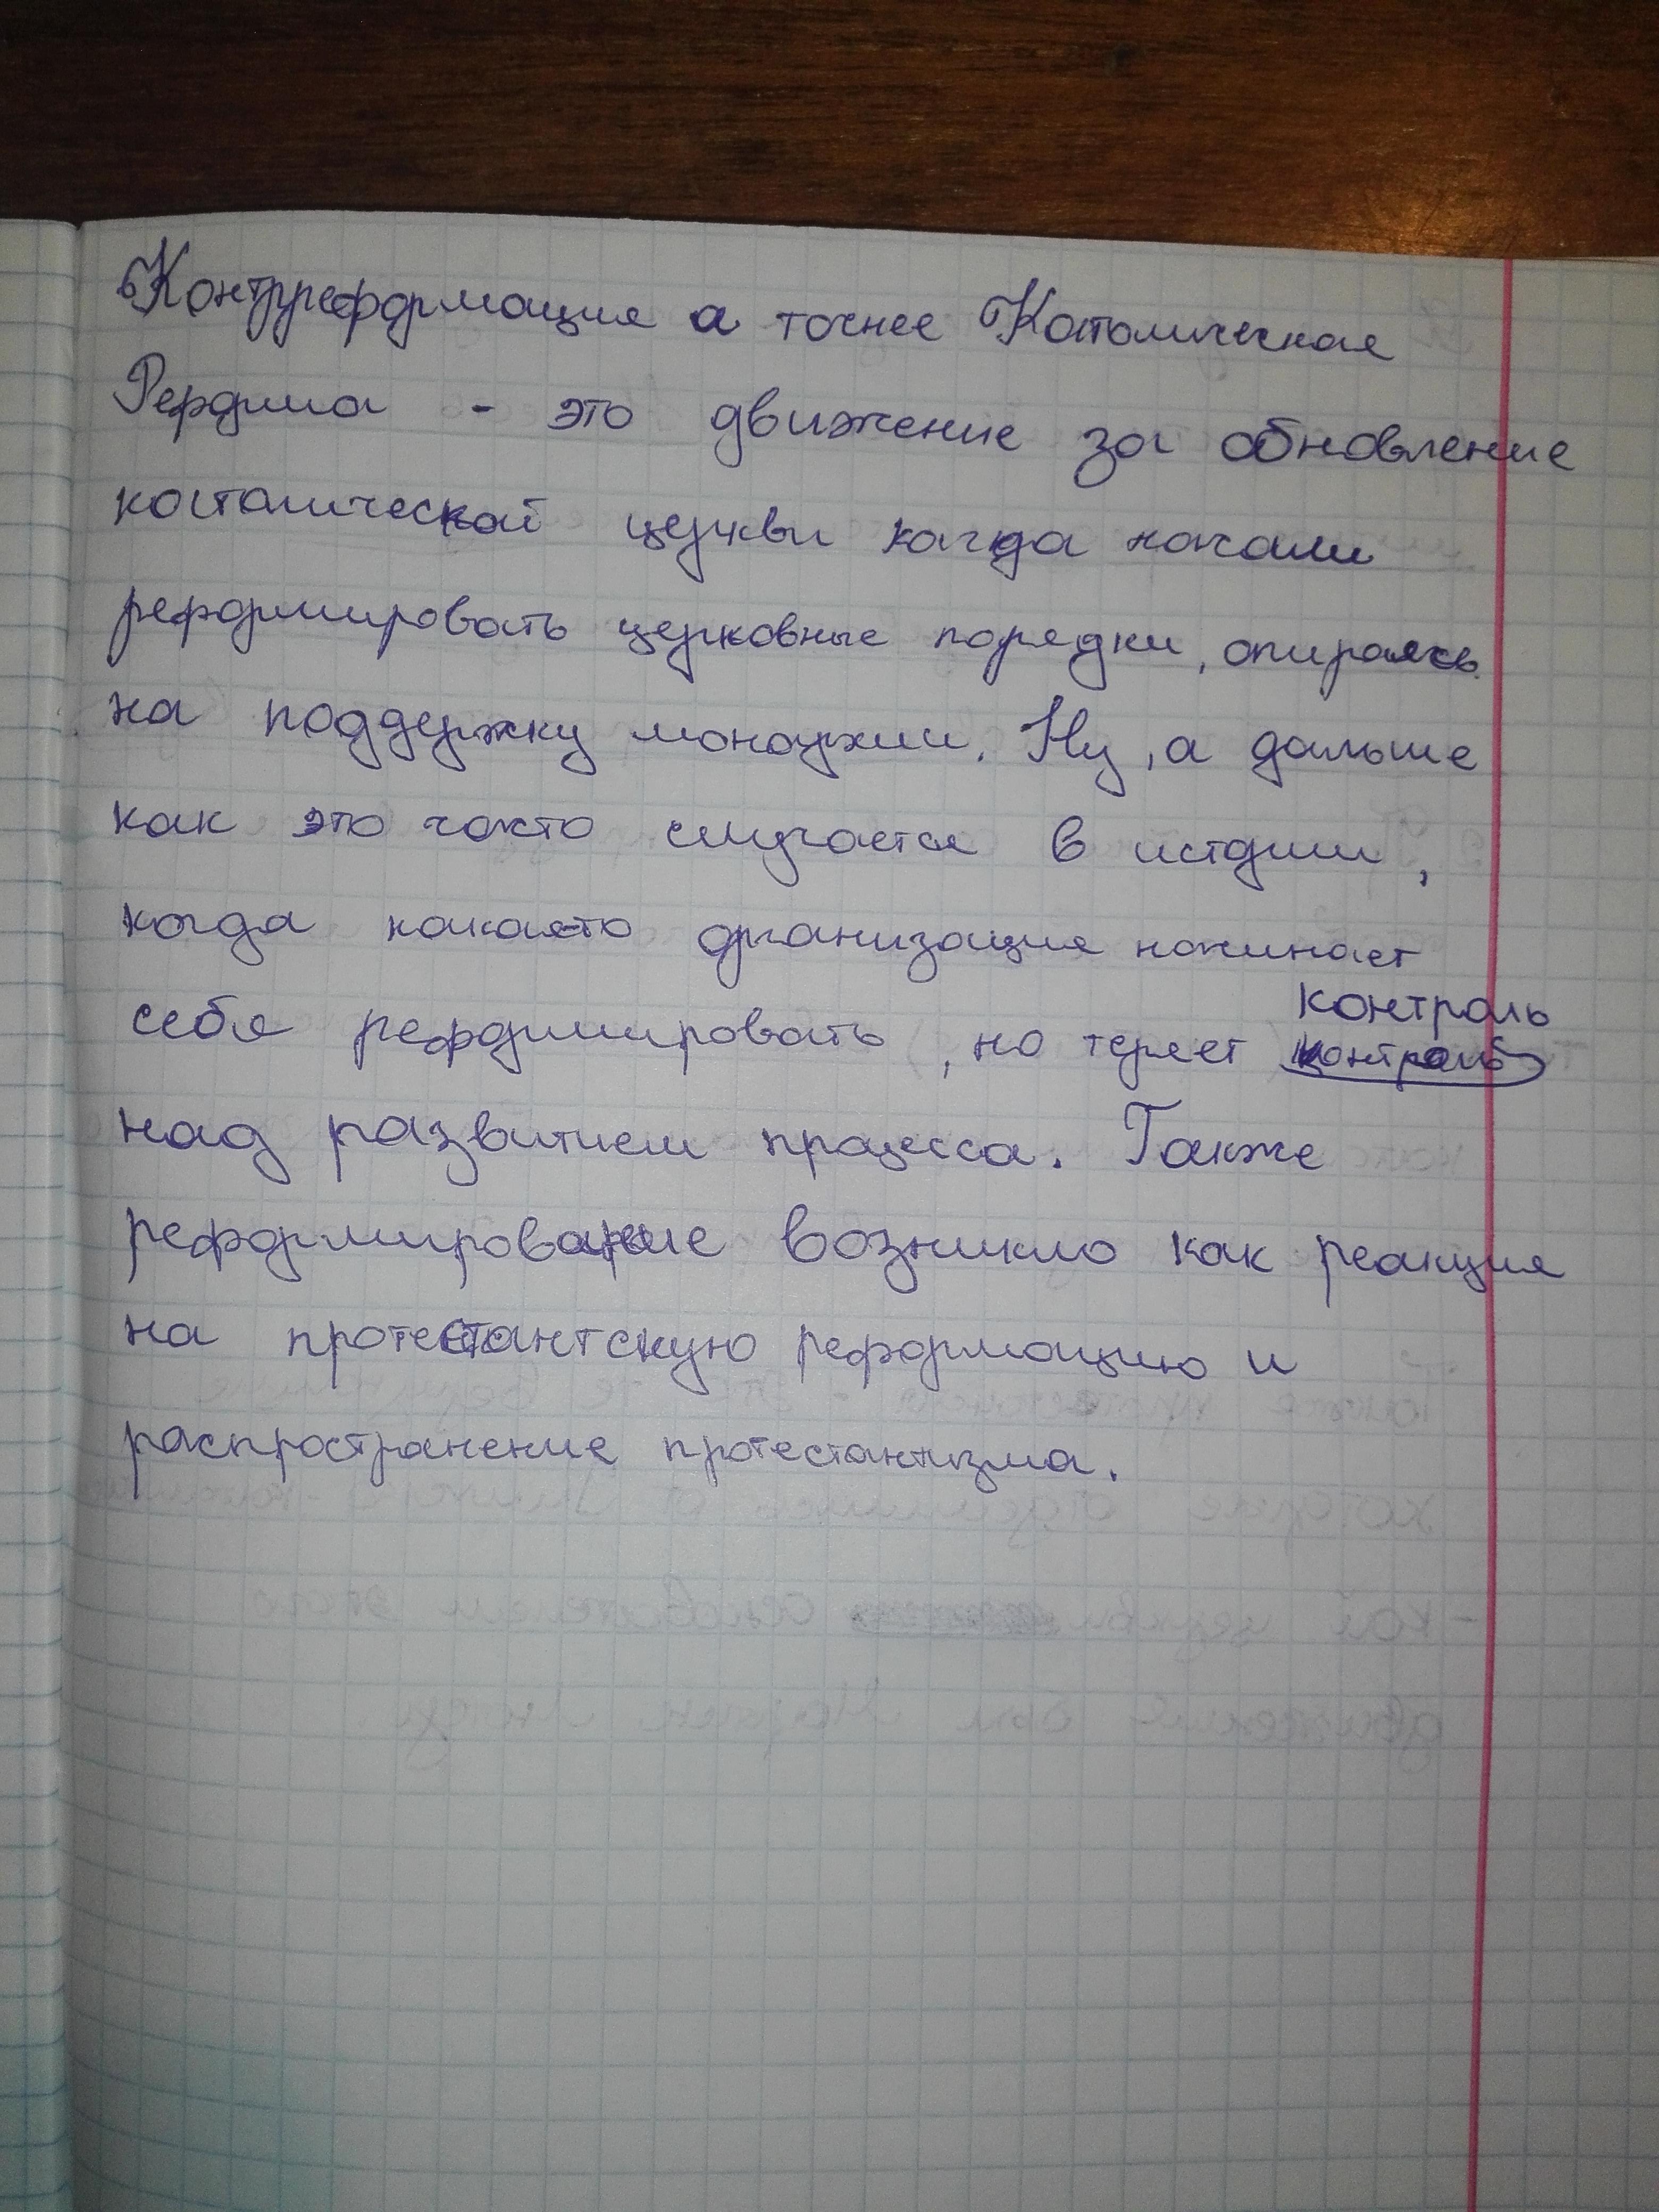 Контрреформация а точнее Католическая
Реформа - это движение за обновление
католической церкви когда начали
реформировать церковные порядки, опираясь
на поддержку монархии. Ну, а дальше
как это часто случается в истории,
когда какая-то организация начинает
себя реформировать, но теряет контроль
над развитием процесса. Также
реформирование возникло как реакция
на протестантскую реформацию и
распространение протестантизма.